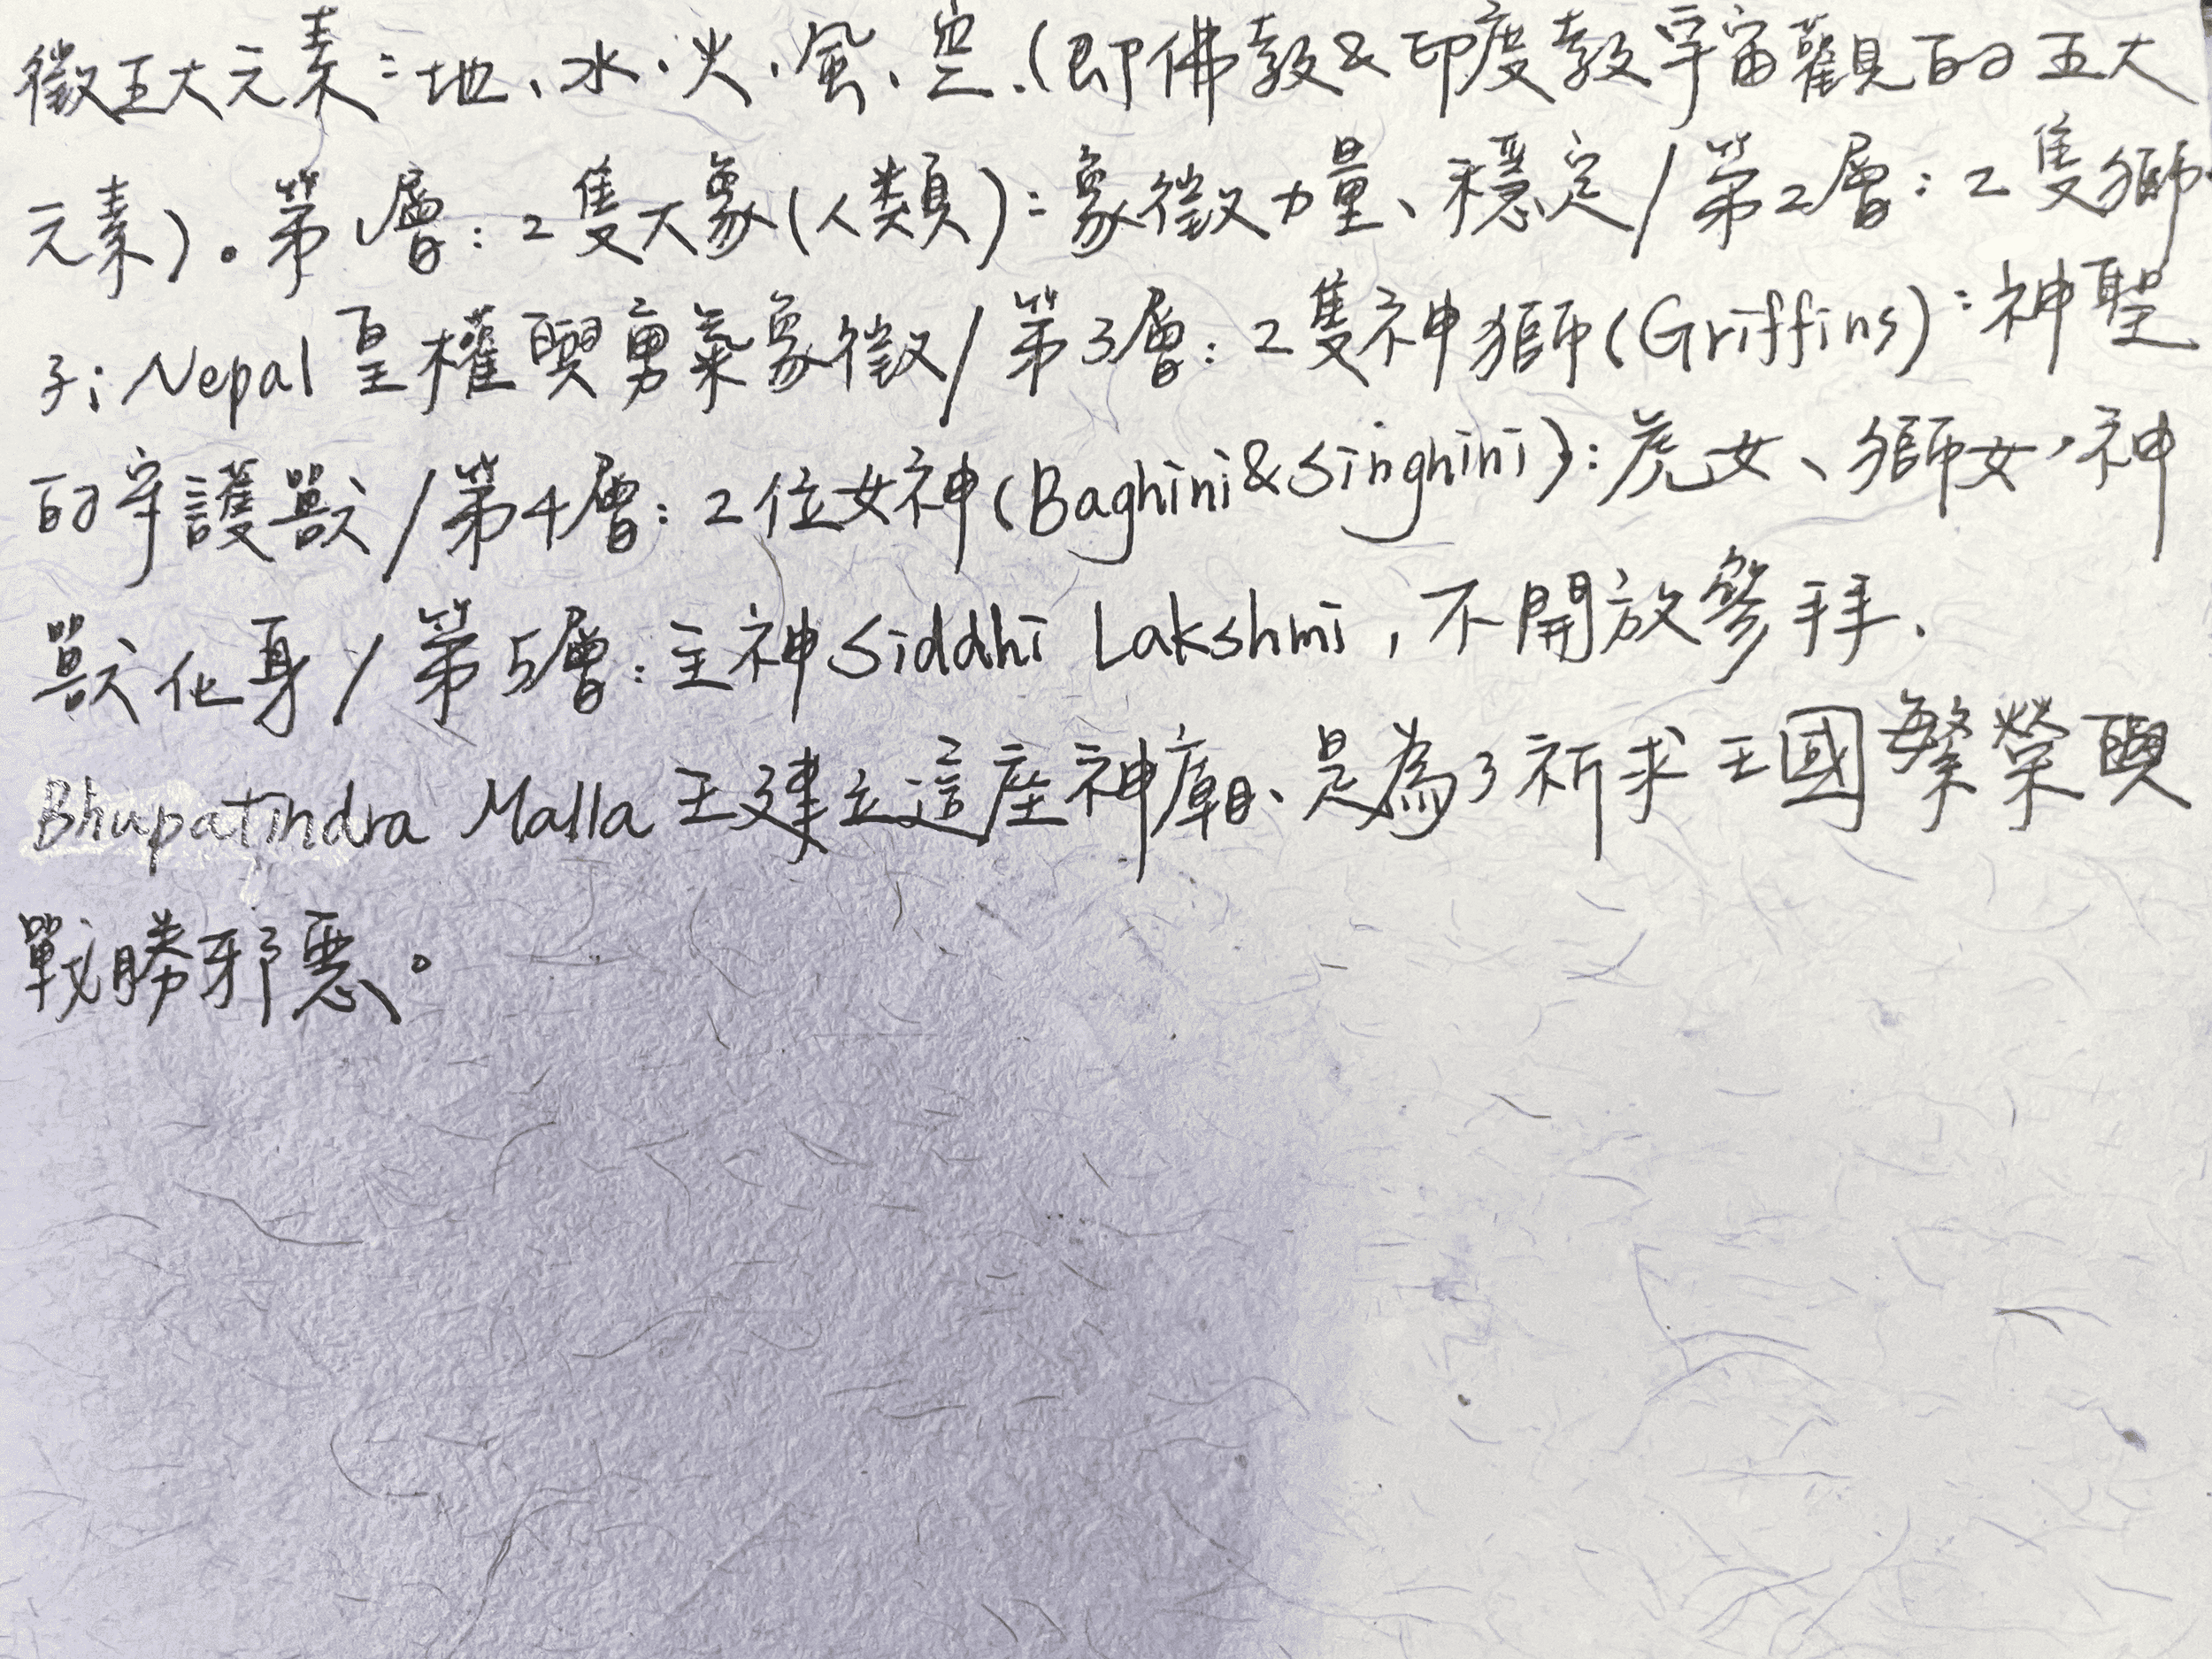 徵五大元素:地、水、火、風、空.(即佛教&印度教宇宙觀的五大
元素)。第1層:2隻大象(人類):象徵力量、穩定/第2層:2隻獅
子:Nepal皇權與勇氣象徵/第3層:2隻神獅(Griffins):神聖
的守護獸/第4層:2位女神(Baghini&Singhini):虎女、獅女,神
獸化身/第5層:主神Siddhi Lakshmi,不開放參拜.
Bhupatindra Malla王建立這座神廟、是為了祈求王國繁榮與
戰勝邪惡。